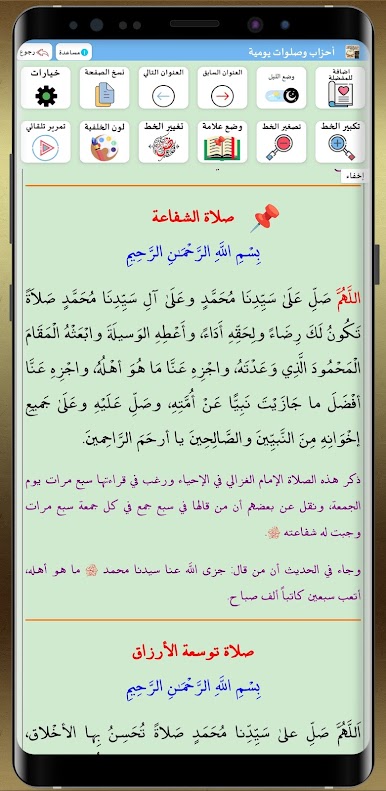 أحزاب وصلوات يومية
مساعدة
رجوع
اضافة للمفضلة
وضع الليل
العنوان السابق
العنوان التالي
نسخ الصفحة
خيارات
تكبير الخط
تصغير الخط
وضع علامة
تغيير الخط
لون الخلفية
تمرير تلقائي
إخفاء
صلاة الشفاعة
بِسْمِ اللَّهِ الرَّحْمَٰنِ الرَّحِيمِ
اللَّهُمَّ صَلِّ عَلَىٰ سَيِّدِنَا مُحَمَّدٍ وعَلَىٰ آلِ سَيِّدِنَا مُحَمَّدٍ صَلاَةً
تَكُونُ لَكَ رِضَاءً ولِحَقِّهِ أَدَاءً، وأَعْطِهِ الوَسِيلَةَ وابْعَثْهُ المَقَامَ
المَحْمُودَ الَّذِي وَعَدْتَهُ، واجْزِهِ عَنَّا مَا هُوَ أَهْلُهُ، واجْزِهِ عَنَّا
أَفْضَلَ ما جَازَيْتَ نَبِيًّا عَنْ أُمَّتِهِ، وصَلِّ عَلَيْهِ وعَلَىٰ جَمِيعِ
إخْوَانِهِ مِنَ النَّبِيِّينَ والصَّالِحِينَ يا أرحَمَ الرَّاحِمِينَ.
ذكر هذه الصلاة الإمام الغزالي في الإحياء ورغب في قراءتها سبع مرات يوم
الجمعة، ونقل عن بعضهم أن من قالها في سبع جمع في كل جمعة سبع مرات
وجبت له شفاعته ﷺ.
وجاء في الحديث أن من قال: جزى الله عنا سيدنا محمد ﷺ ما هو أهله،
أتعب سبعين كاتباً ألف صباح.
صلاة توسعة الأرزاق
بِسْمِ اللَّهِ الرَّحْمَٰنِ الرَّحِيمِ
اَللَّهُمَّ صَلِّ علىٰ سَيِّدِنا مُحَمَدٍ صَلاةً تُحَسِنُ بِها الأَخْلاقَ،